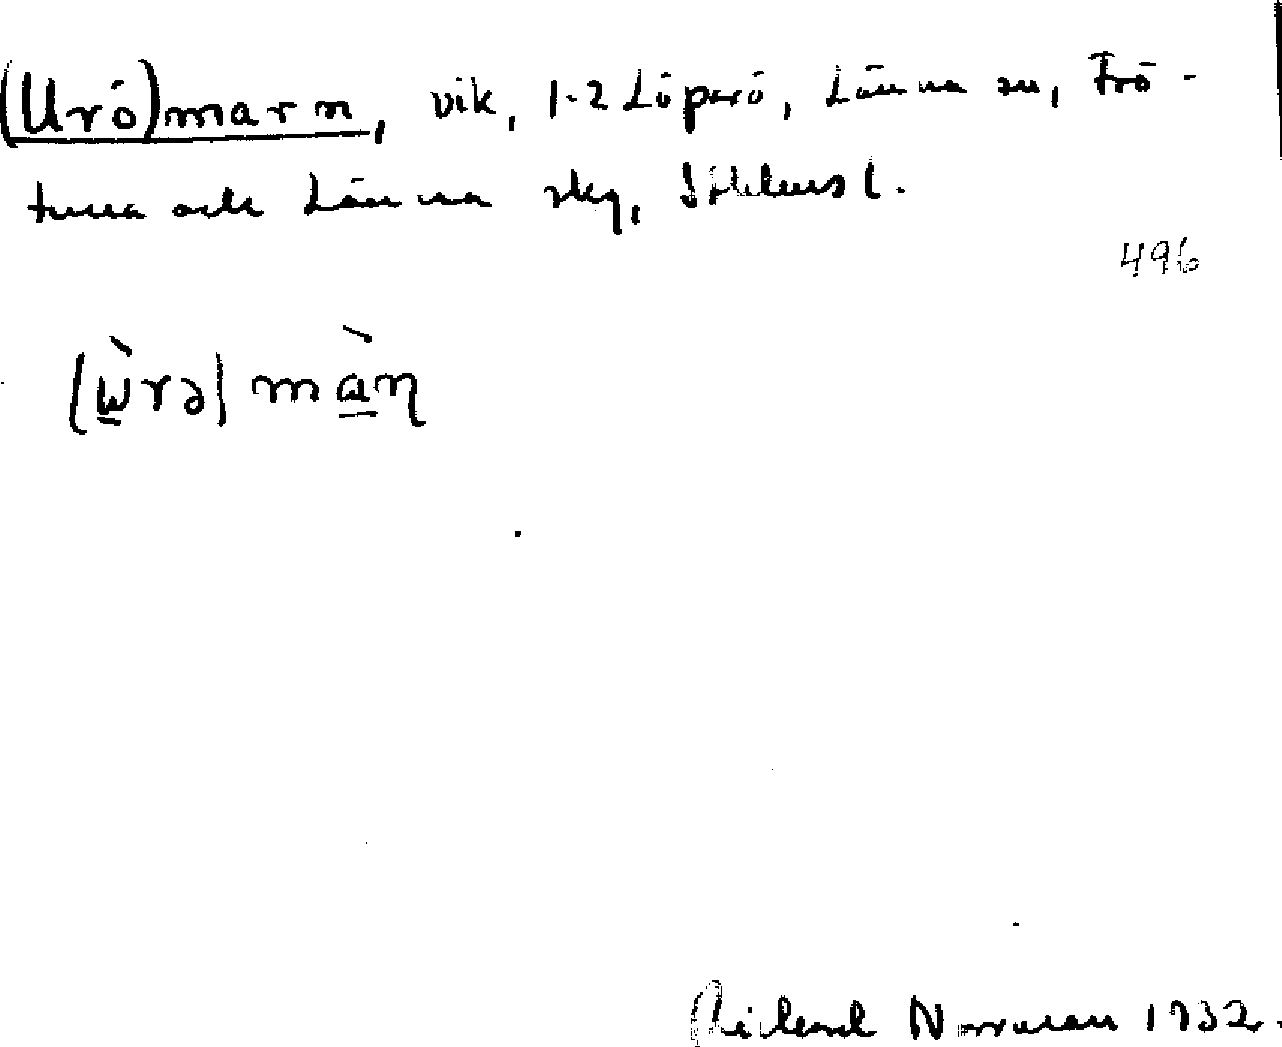 (Urö)marn, vik, 1-2 Löparö, Länna sn, Frö-
tuna och Länna skg, Sthlms l.
496
(ẁrə)màn̩
Rickard Norrman 1932.